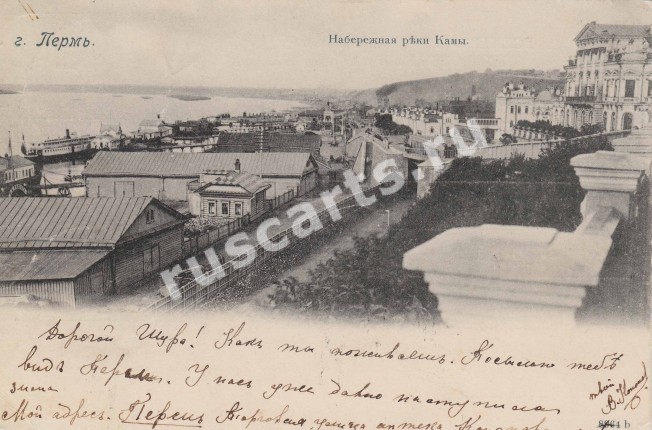 г. Пермь.
Набережная рѣки Камы.
ruscarts.ru
Дорогой Шура! Какъ ты поживаешь. Посылаю тебѣ
видъ Перми. У насъ уже давно наступила
зима
твой
Мой адресъ. Пермь Торговая улица аптека
8864 b